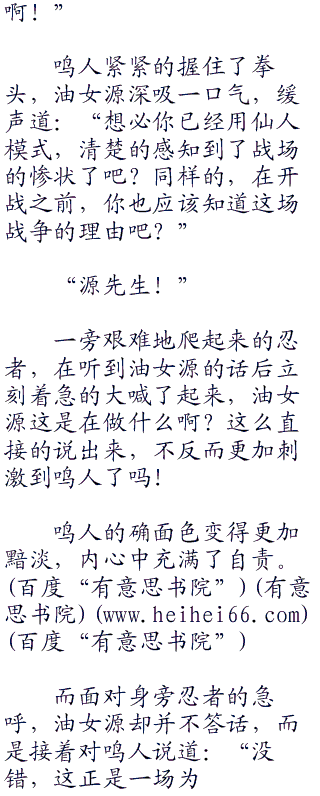 啊！”
鸣人紧紧的握住了拳
头，油女源深吸一口气，缓
声道：“想必你已经用仙人
模式，清楚的感知到了战场
的惨状了吧？同样的，在开
战之前，你也应该知道这场
战争的理由吧？”
“源先生！”
一旁艰难地爬起来的忍
者，在听到油女源的话后立
刻着急的大喊了起来，油女
源这是在做什么啊？这么直
接的说出来，不反而更加刺
激到鸣人了吗！
鸣人的确面色变得更加
黯淡，内心中充满了自责。
(百度“有意思书院”)(有意
思书院)(www.heihei66.com)
(百度“有意思书院”)
而面对身旁忍者的急
呼，油女源却并不答话，而
是接着对鸣人说道：“没
错，这正是一场为